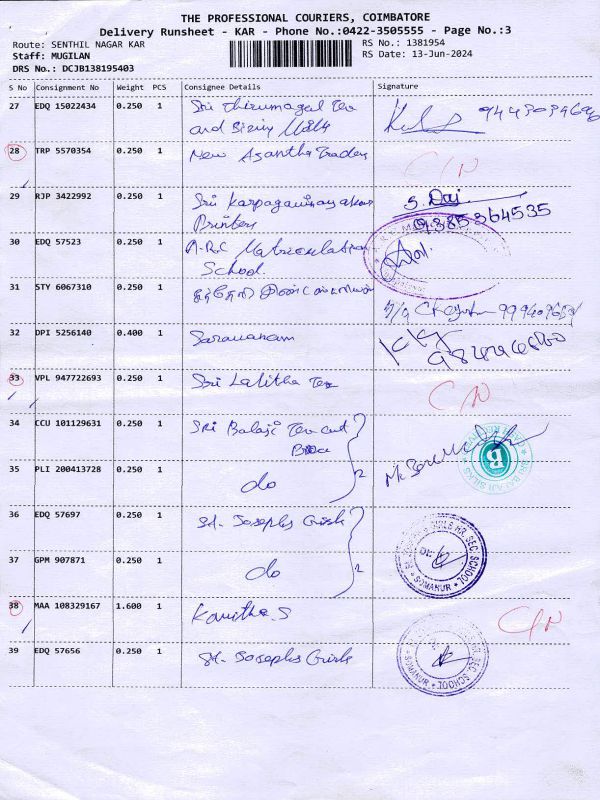 THE PROFESSIONAL COURIERS, COIMBATORE
Delivery Runsheet - KAR - Phone No.:0422-3505555 - Page No.:3
Route: SENTHIL NAGAR KAR
RS No.: 1381954
Staff: MUGILAN
RS Date: 13-Jun-2024
DRS No.: DCJB138195403
S No Consignment No Weight PCS Consignee Details Signature
27 EDQ 15022434 0.250 1 Sri Thirumagal Tex
and Sizing Mills
28 TRP 5570354 0.250 1 New Ajantha Traders C/N
29 RJP 3422992 0.250 1 Sri Karpagavinayakar S. Daj
Printers 9385364535
30 EDQ 57523 0.250 1 A.R.C Matriculation
School
31 STY 6067310 0.250 1
32 DPI 5256140 0.400 1 Saravanam
33 VPL 947722693 0.250 1 Sri Lalitha Tex C/N
34 CCU 101129631 0.250 1 Sri Balaji Tex and
35 PLI 200413728 0.250 1 do 2
SRI BALAJI SILKS
36 EDQ 57697 0.250 1 St. Josephs Girls
37 GPM 907871 0.250 1 do 2
GIRLS HR. SEC. SCHOOL
SOMANUR
38 MAA 108329167 1.600 1 Kavitha S C/N
39 EDQ 57656 0.250 1 St. Josephs Girls
HR. SEC. SCHOOL
SOMANUR